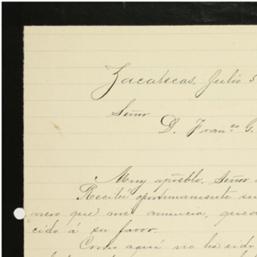 Zacatecas, Julio 3
Señor
D. Fran.co G.
Muy apreble. Señor
Recibí oportunamente su
me anuncia, que
cido á su favor.
Como aquí no ha sido